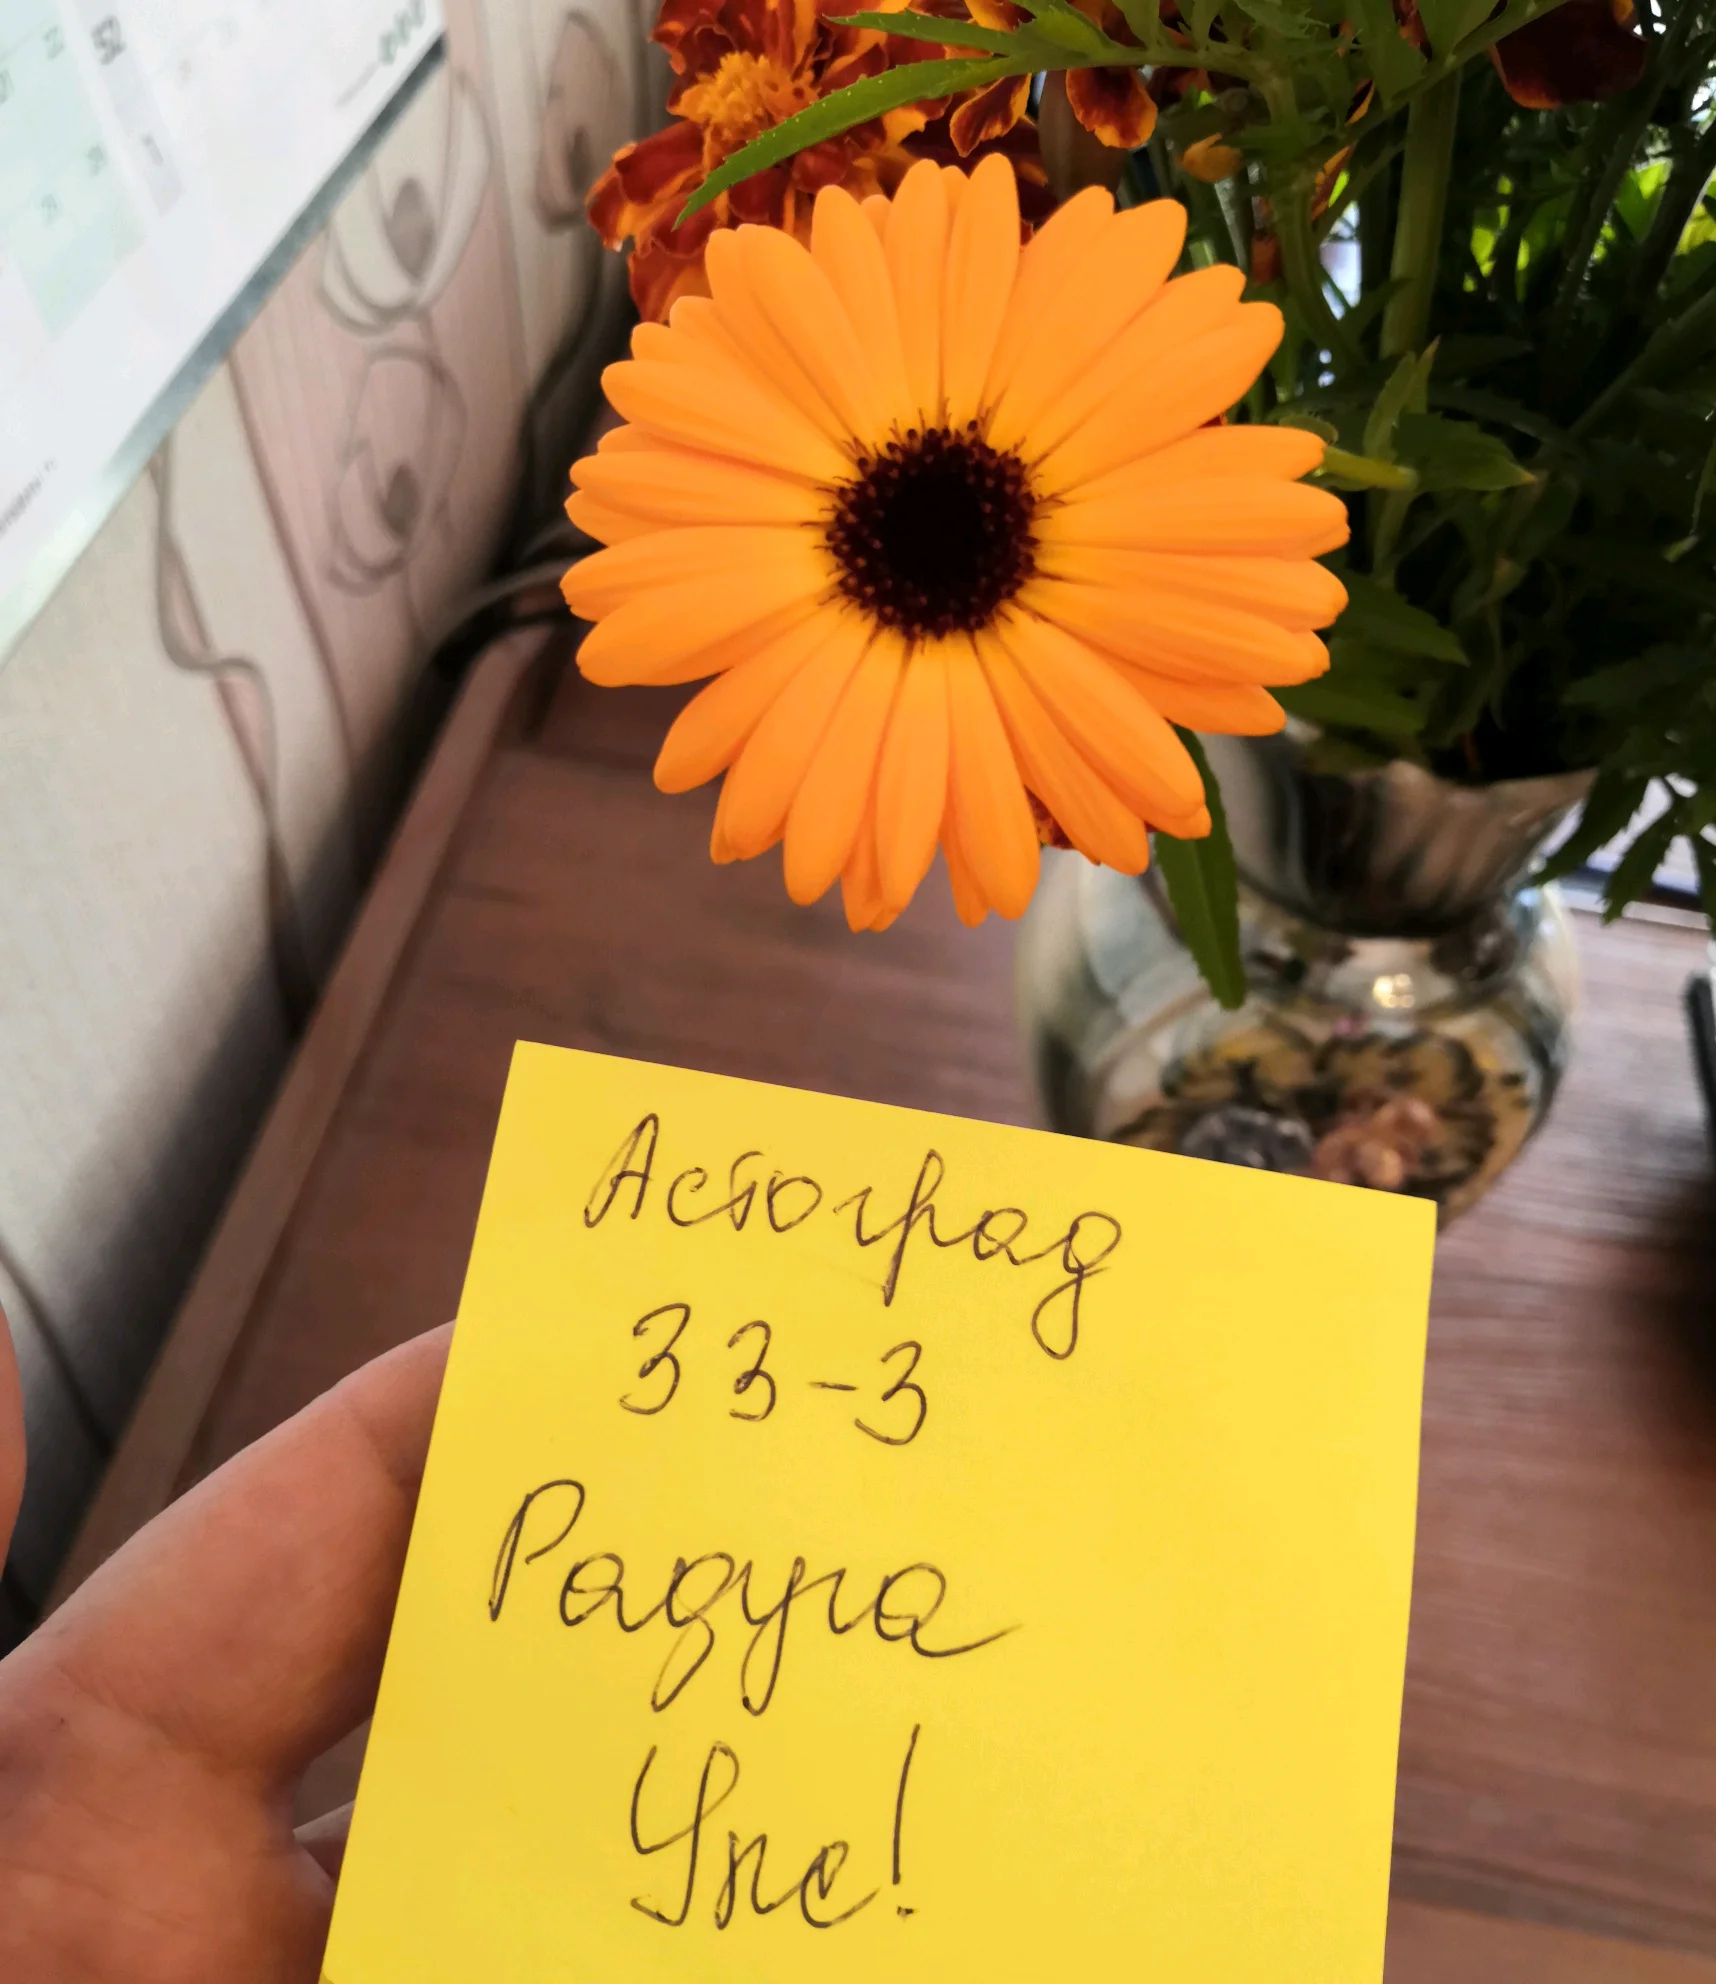 Астоград
33-3
Радуга
Упс!